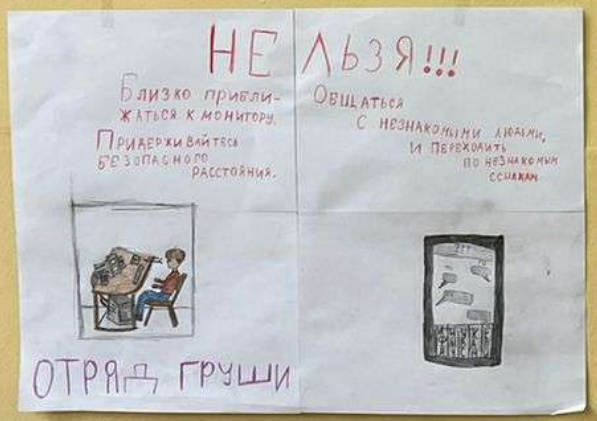 НЕЛЬЗЯ!!!
Близко прибли-
жаться к монитору.
Придерживайтесь
безопасного
расстояния.
Общаться
с незнакомыми людьми,
и переходить
по незнакомым
ссылкам
ОТРЯД ГРУШИ